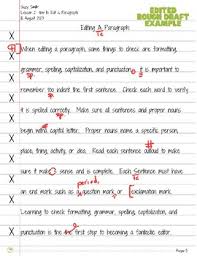 EDITED
ROUGH DRAFT
EXAMPLE
Lesson 2: How to Edit a Paragraph
8 August 2017
Editing A Paragraph
When editing a paragraph, some things to check are formatting,
grammar, spelling, capitalization, and punctuation. it is important to
remember too indent the first sentence. Check every word to make sure it
is spelled correctly. Make sure all sentences and proper nouns
begin with a capital letter. Proper nouns name a specific person,
place, thing, activity, or idea. Read each sentence outloud to make
sure it make sense and is complete. Each Sentence must have
period,
an end mark such as question mark or exclamation mark.
Learning to check formatting, grammar, spelling, capitalization, and
punctuation is the first step to becoming a fantastic editor.
Page 5